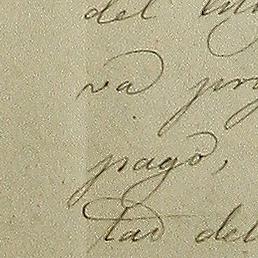 del
va
pago,
tad del